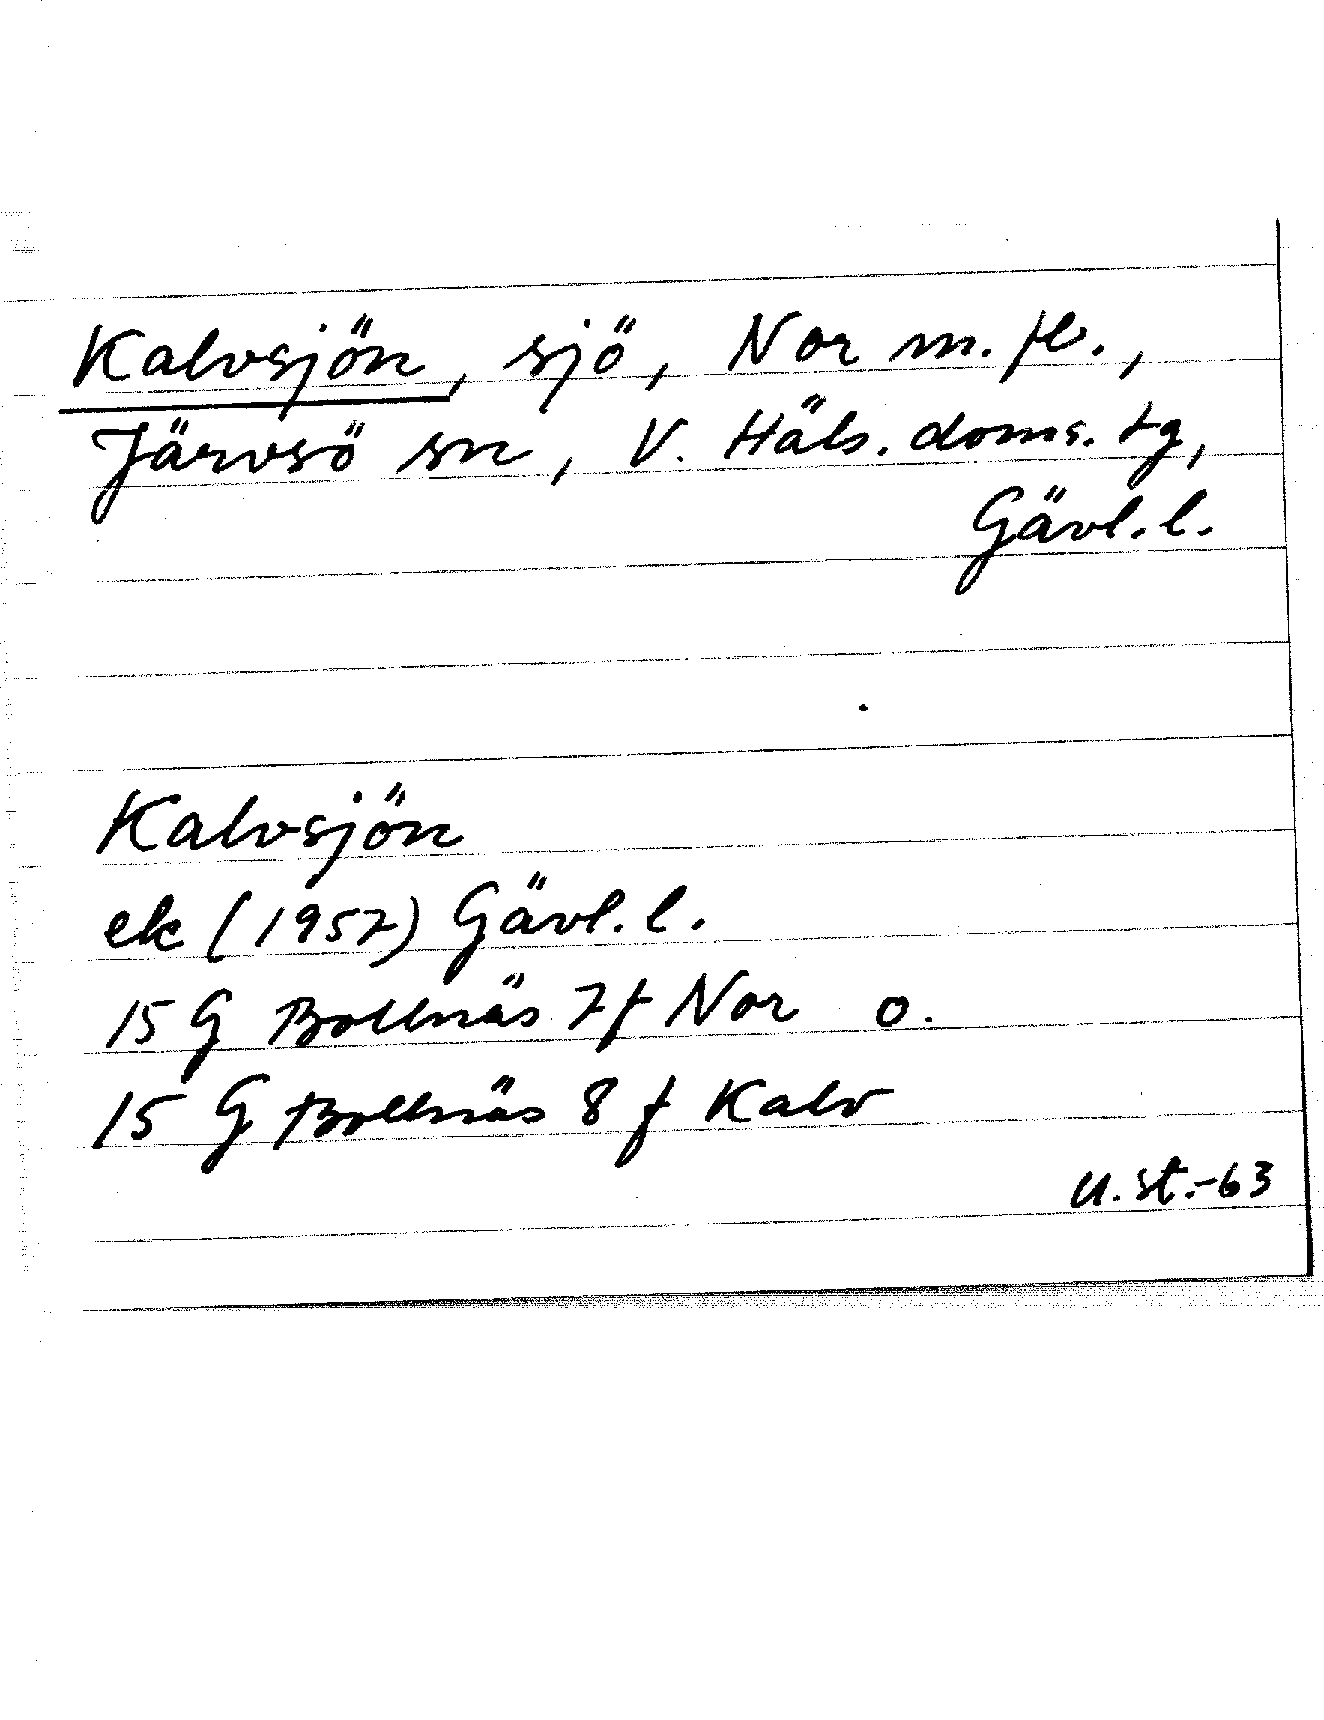 Kalvsjön, sjö, Nor m. fl.,
Järvsö sn, V. Häls. doms. tg,
Gävl. l.
Kalvsjön
ek (1957) Gävl. l.
15 G Bollnäs 7f Nor o.
15 G Bollnäs 8 f Kalv
U. st. -63